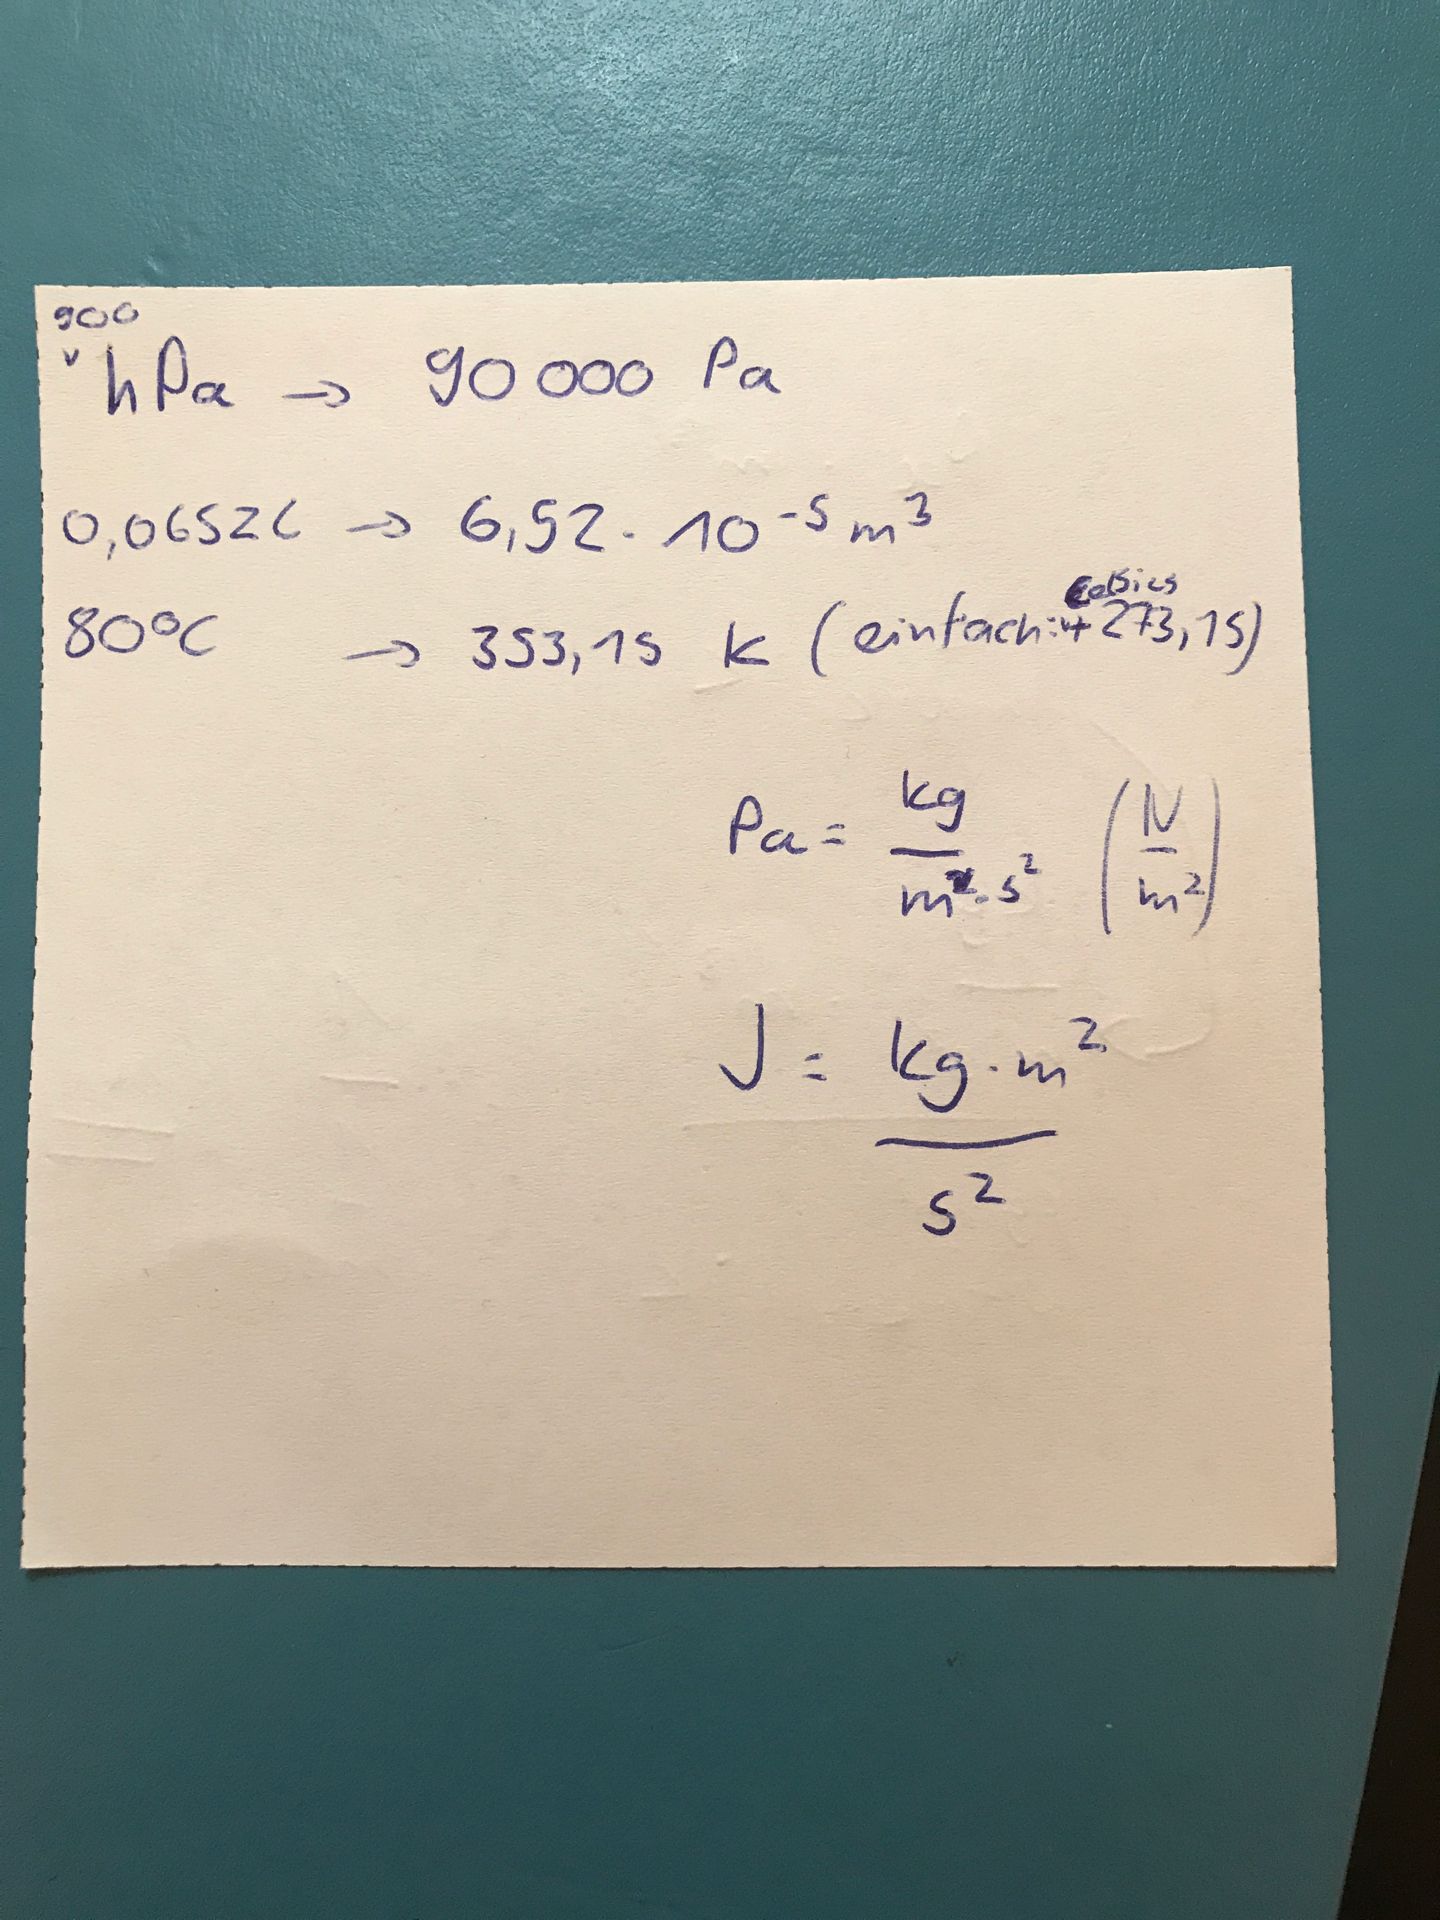 900
hPa → 90 000 Pa
0,0652L → 6,52 · 10⁻⁵ m³
80°C → 353,15 K (einfach: Celsius + 273,15)
Pa = kg / m · s² (N / m²)
J = kg · m² / s²